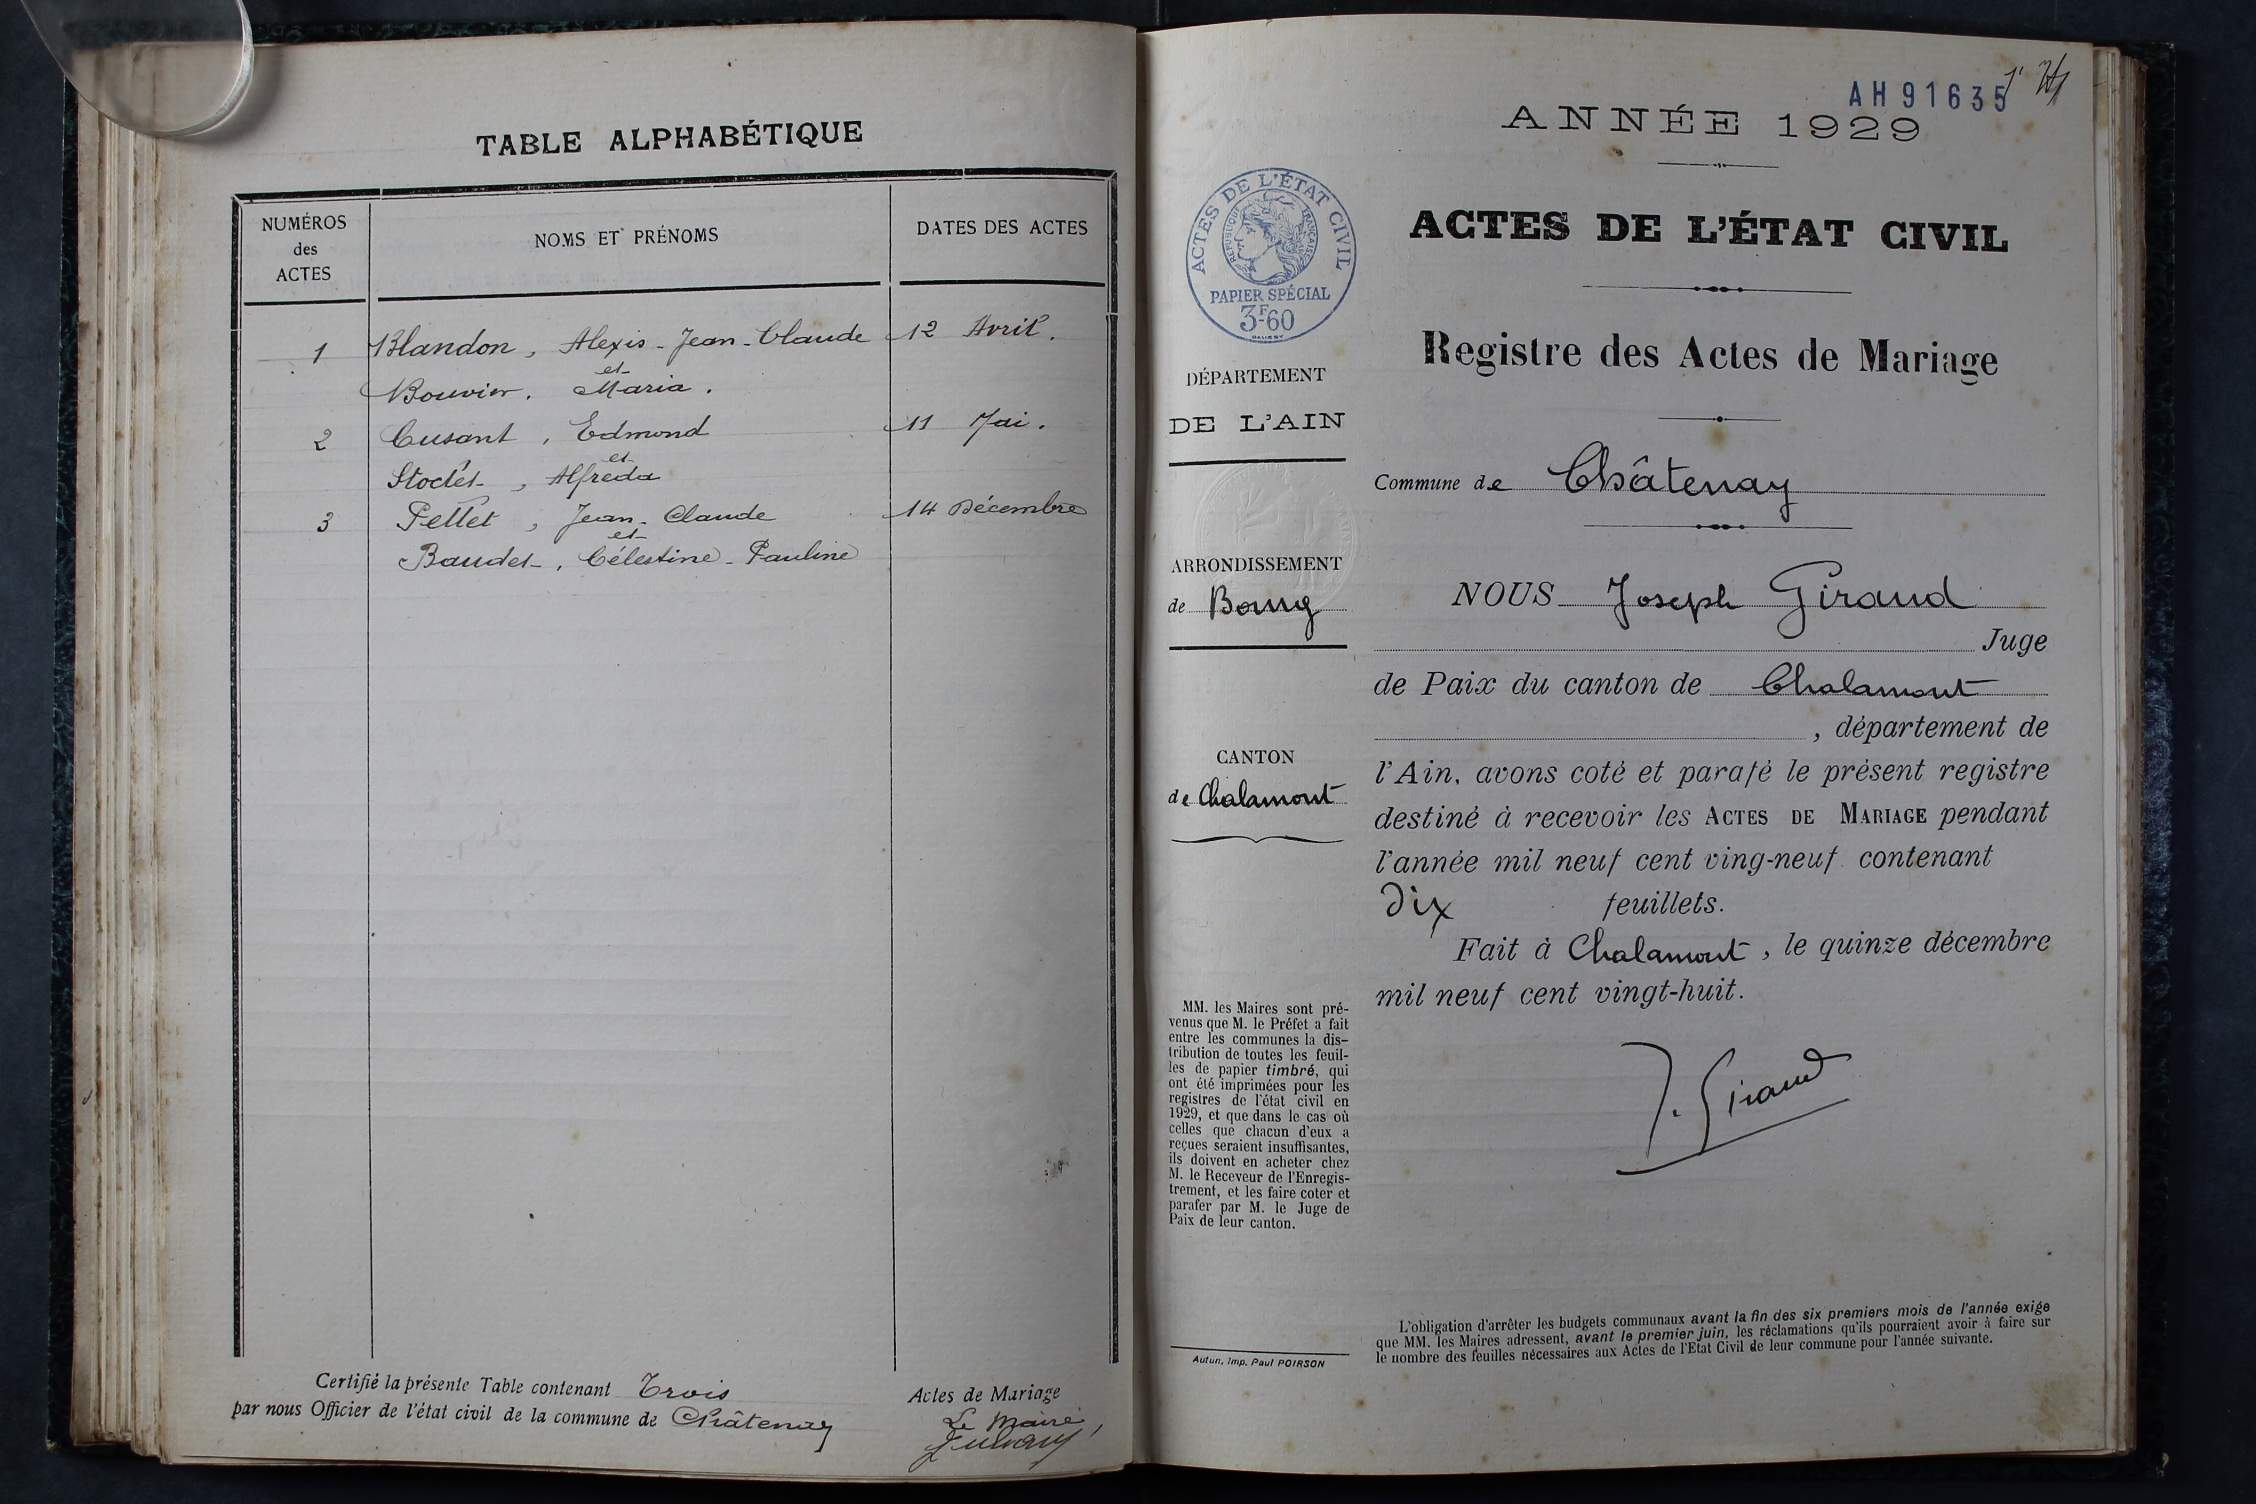 TABLE ALPHABÉTIQUE
NUMÉROS
des
ACTES
NOMS ET PRÉNOMS
DATES DES ACTES
1 Blandon, Alexis-Jean-Claude 12 Avril.
et
Bouvier, Maria.
2 Cusant, Edmond 11 Mai.
et
Stoclet, Alfréda
3 Pellet, Jean-Claude 14 Décembre
et
Baudet, Célestine-Pauline
Certifié la présente Table contenant Trois Actes de Mariage
par nous Officier de l'état civil de la commune de Châtenay
Le Maire
AH 91635
ANNÉE 1929
ACTES DE L'ÉTAT CIVIL
RÉPUBLIQUE FRANÇAISE
PAPIER SPÉCIAL
3F60
DÉPARTEMENT
DE L'AIN
ARRONDISSEMENT
de Bourg
CANTON
de Chalamont
MM. les Maires sont pré-
venus que M. le Préfet a fait
entre les communes la dis-
tribution de toutes les feuil-
les de papier timbré, qui
ont été imprimées pour les
registres de l'état civil en
1929, et que dans le cas où
celles que chacun d'eux a
reçues seraient insuffisantes,
ils doivent en acheter chez
M. le Receveur de l'Enregis-
trement, et les faire coter et
parafer par M. le Juge de
Paix de leur canton.
Autun, Imp. Paul POIRSON
ACTES DE L'ÉTAT CIVIL
Registre des Actes de Mariage
Commune de Châtenay
NOUS Joseph Giraud
Juge
de Paix du canton de Chalamont
, département de
l'Ain, avons coté et parafé le présent registre
destiné à recevoir les ACTES DE MARIAGE pendant
l'année mil neuf cent ving-neuf contenant
Dix feuillets.
Fait à Chalamont, le quinze décembre
mil neuf cent vingt-huit.
J. Giraud
L'obligation d'arrêter les budgets communaux avant la fin des six premiers mois de l'année exige
que MM. les Maires adressent, avant le premier juin, les réclamations qu'ils pourraient avoir à faire sur
le nombre des feuilles nécessaires aux Actes de l'Etat Civil de leur commune pour l'année suivante.